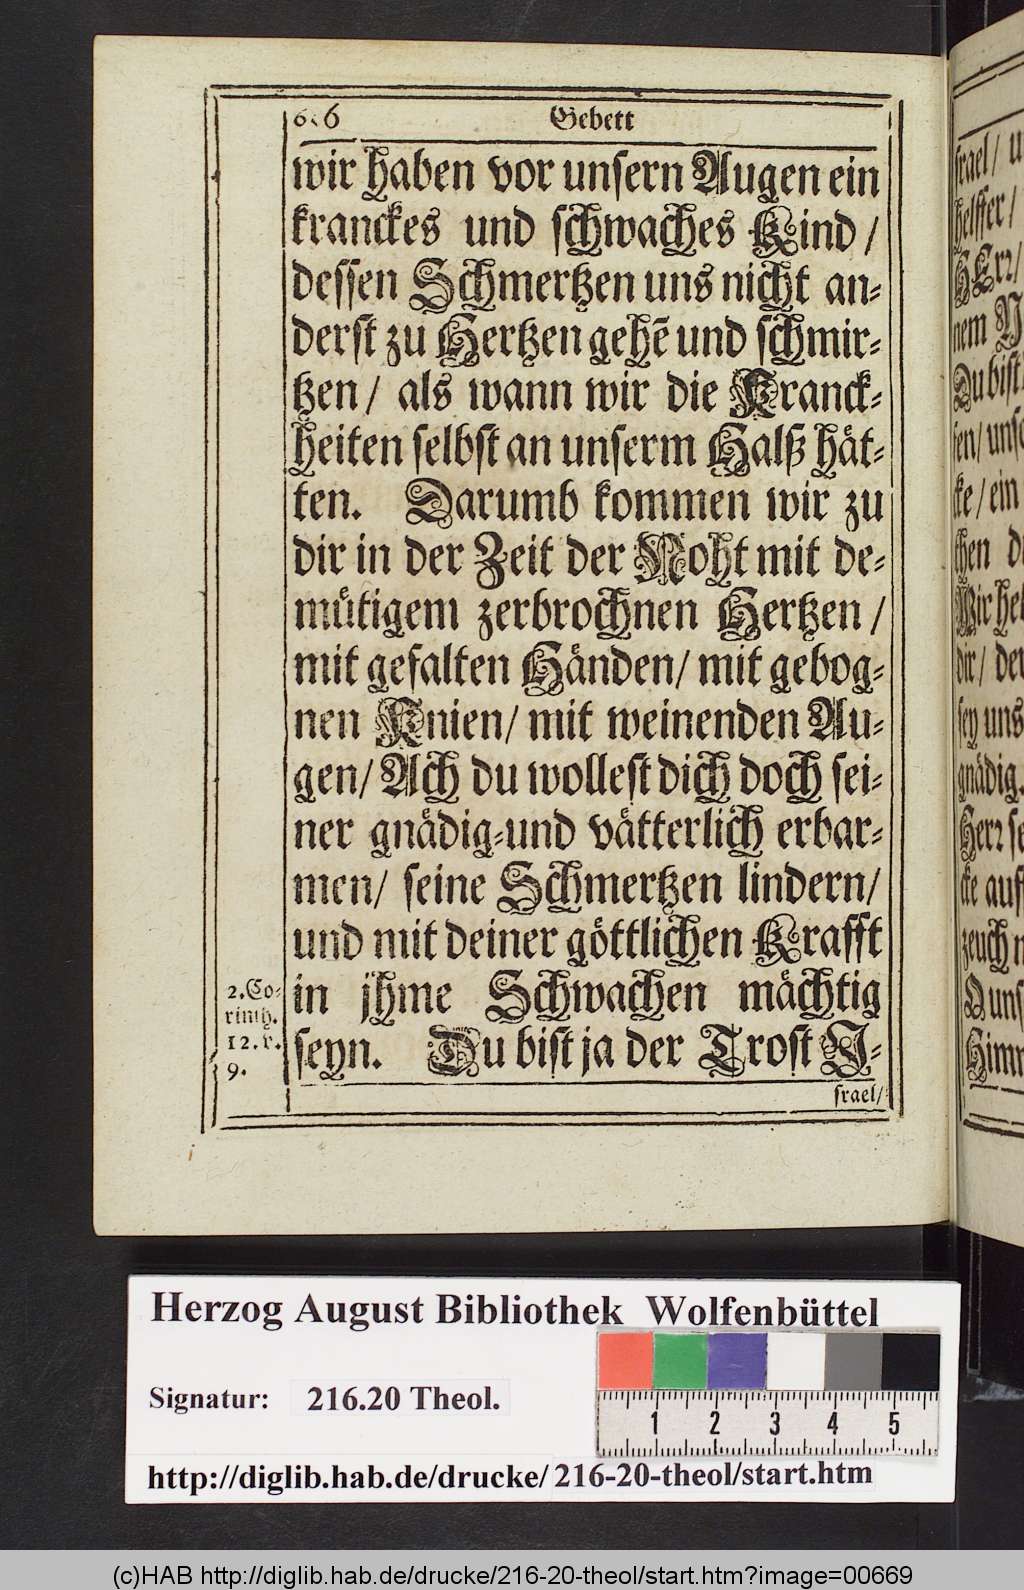 Gebett
wir haben vor unsern Augen ein
kranckes und schwaches Kind /
dessen Schmertzen uns nicht an-
derst zu Hertzen gehẽ und schmir-
tzen / als wann wir die Kranck-
heiten selbst an unserm Halß hät-
ten. Darumb kommen wir zu
dir in der Zeit der Noht mit de-
mütigem zerbrochnen Hertzen /
mit gefalten Händen / mit gebog-
nen Knien / mit weinenden Au-
gen / Ach du wollest dich doch sei-
ner gnädig-und vätterlich erbar-
men / seine Schmertzen lindern /
und mit deiner göttlichen Krafft
in jhme Schwachen mächtig
seyn. Du bist ja der Trost J-
srael /
2. Co-
rinth.
12. v.
9.
srael /
helffer /
HErr /
Du bist
Wir
dir /
sey uns
gnädig.
Herr
cke auf
Himm
Herzog August Bibliothek Wolfenbüttel
Signatur: 216.20 Theol.
1 2 3 4 5
http://diglib.hab.de/drucke/ 216-20-theol/start.htm
(c)HAB http://diglib.hab.de/drucke/216-20-theol/start.htm?image=00669